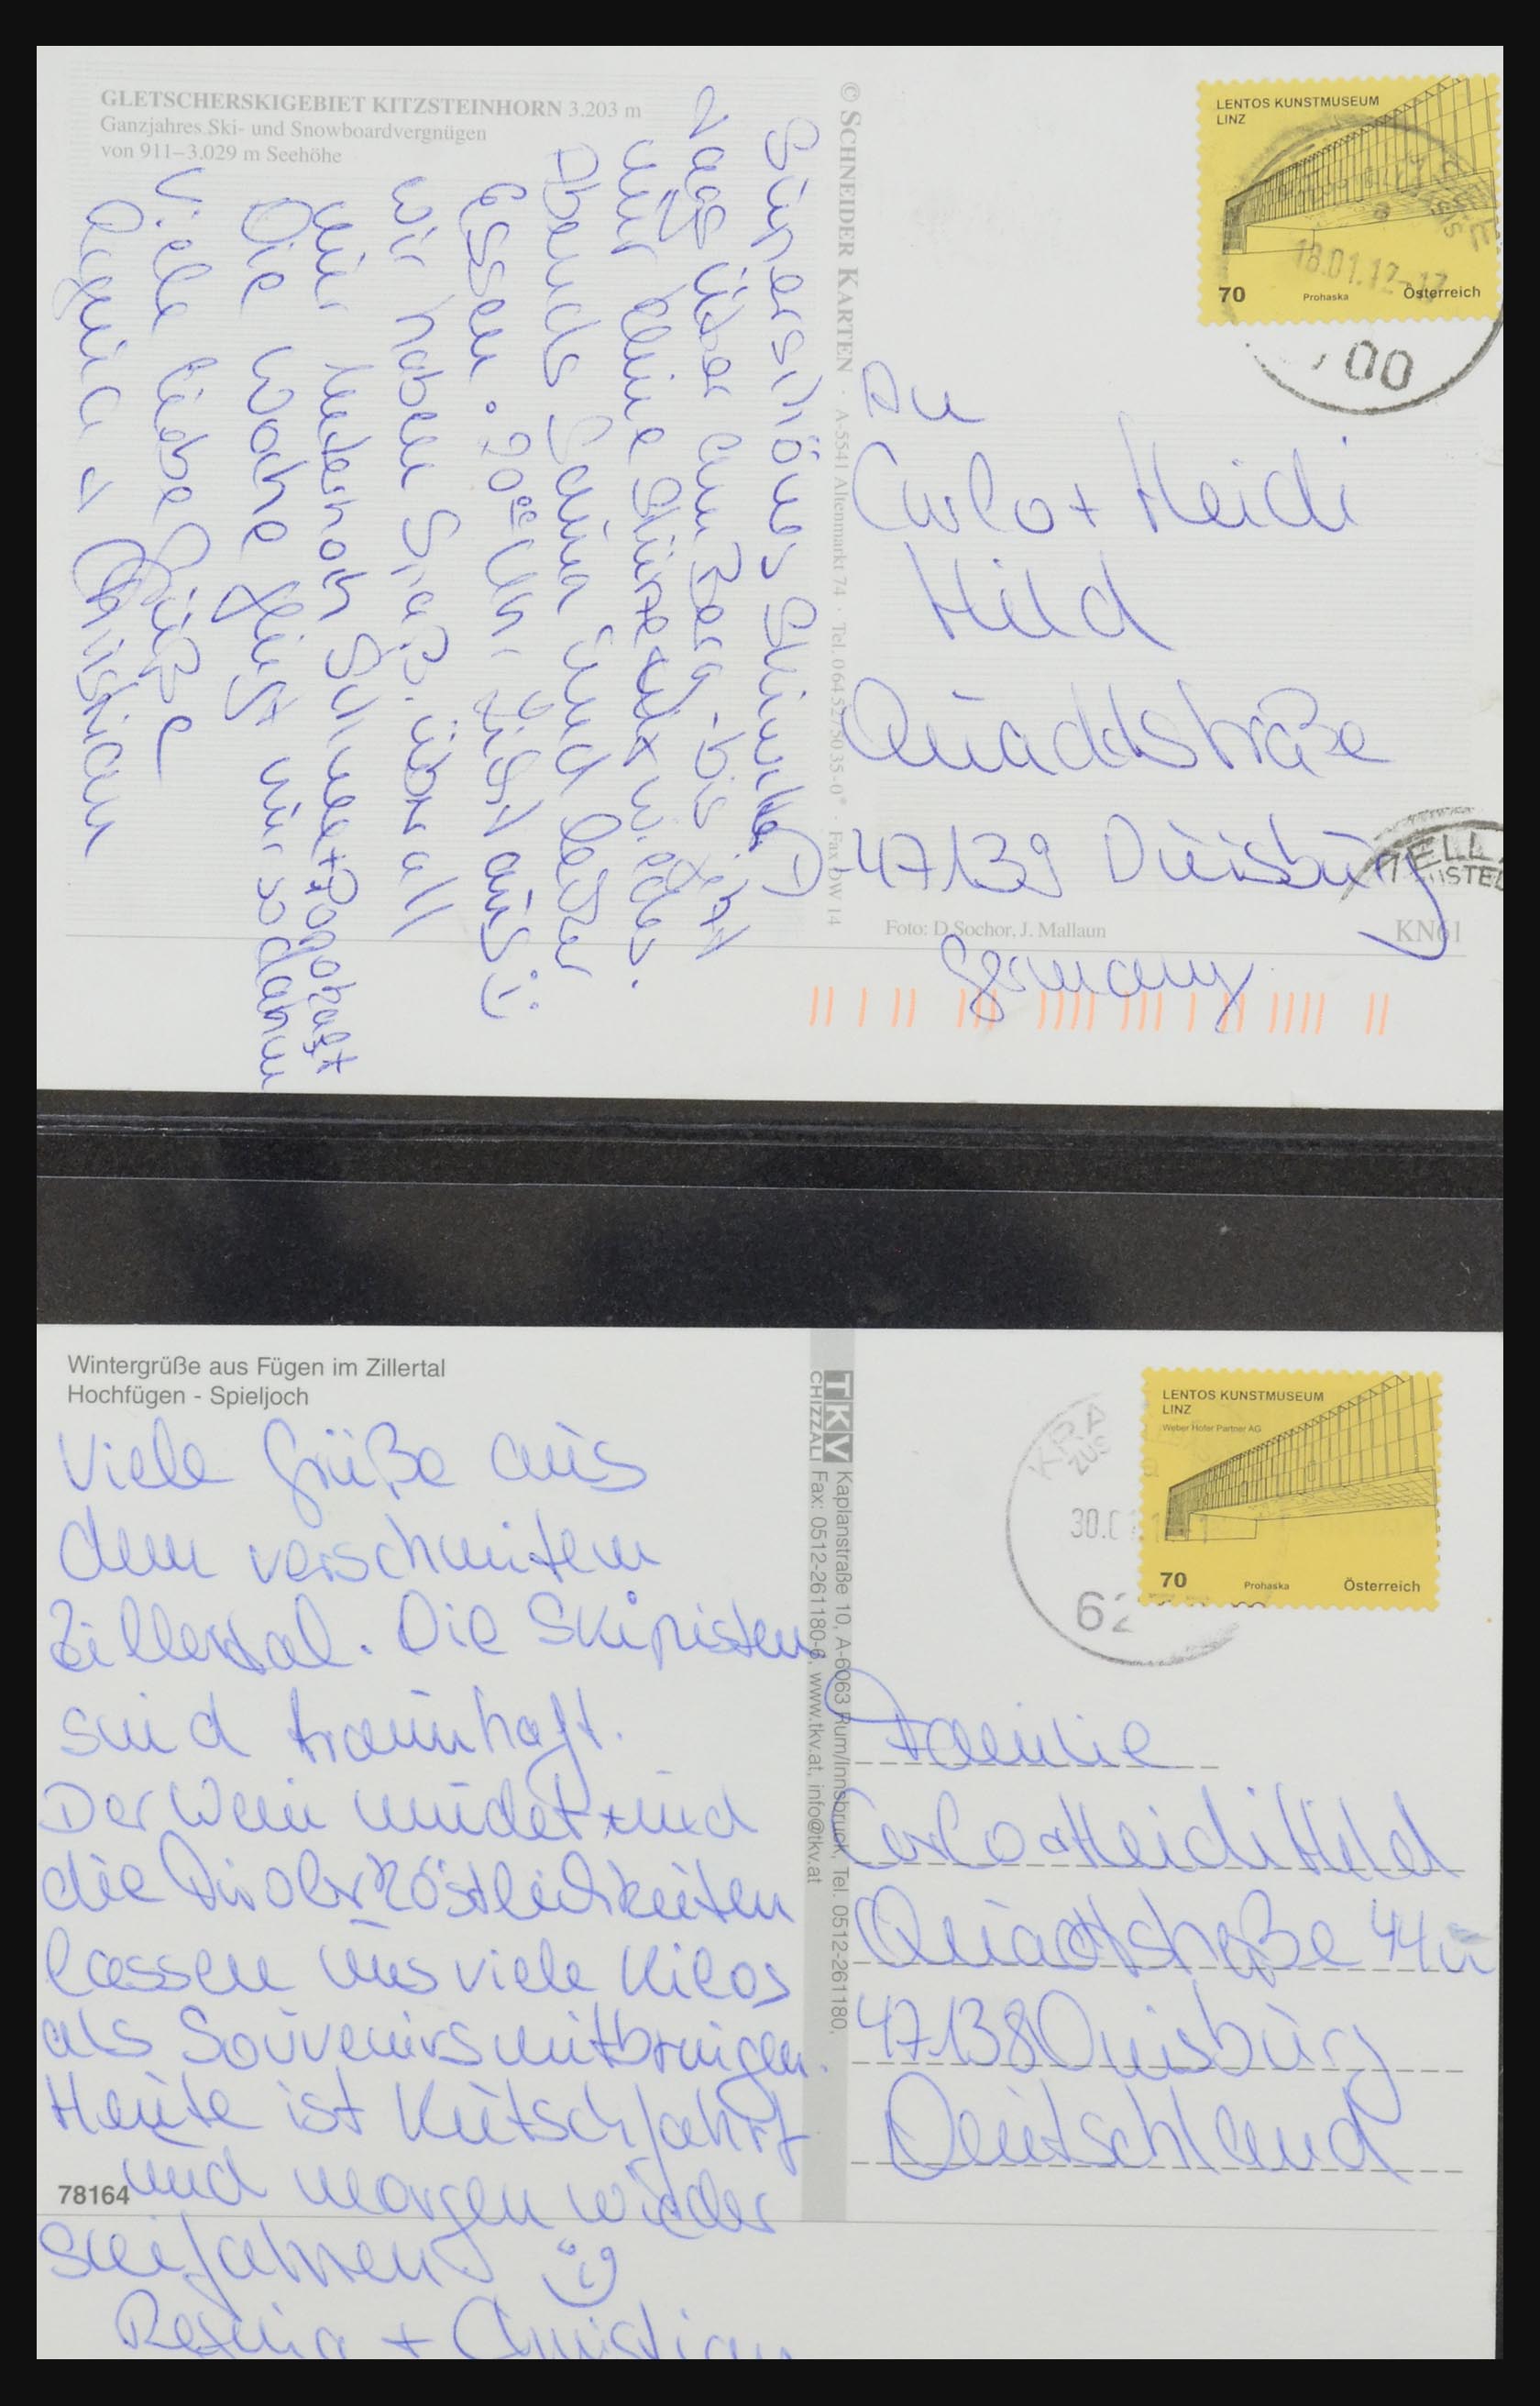 GLETSCHERSKIGEBIET KITZSTEINHORN 3.203 m
Ganzjahres Ski- und Snowboardvergnügen
von 911–3.029 m Seehöhe
© SCHNEIDER KARTEN · A-5541 Altenmarkt 74 · Tel. 0 64 52/750 35-0* · Fax DW 14
LENTOS KUNSTMUSEUM
LINZ
18.01.12-17
70 Prohaska Österreich
00
Tagsüber am Berg - bis jetzt
nur kleine Stürze
Abends Sauna und lecker
Essen. 20ºº Uhr Licht aus
Wir haben Spaß. überall
nur meterhoch Schnee +
Die Woche fliegt nur so dahin
Viele liebe Grüße
Regina + Christian
An
Carlo + Heidi
Hild
Quaddstraße
D-47139 Duisburg
Germany
Foto: D. Sochor, J. Mallaun
KN61
Wintergrüße aus Fügen im Zillertal
Hochfügen - Spieljoch
Viele Grüße aus
dem verschneiten
Zillertal. Die Skipisten
sind traumhaft.
Der Wein mundet und
die Tirolerköstlichkeiten
lassen uns viele Kilos
als Souvenirs mitbringen.
Heute ist Kutschfahrt
und morgen wieder
Skifahren
Regina + Christian
78164
TKV
CHIZZALI
Kaplanstraße 10, A-6063 Rum/Innsbruck, Tel. 0512-261180,
Fax: 0512-261180-6, www.tkv.at, info@tkv.at
LENTOS KUNSTMUSEUM
LINZ
Weber Hofer Partner AG
70 Prohaska Österreich
62
Familie
Carlo + Heidi Hild
Quadtstraße 44
47138 Duisburg
Deutschland